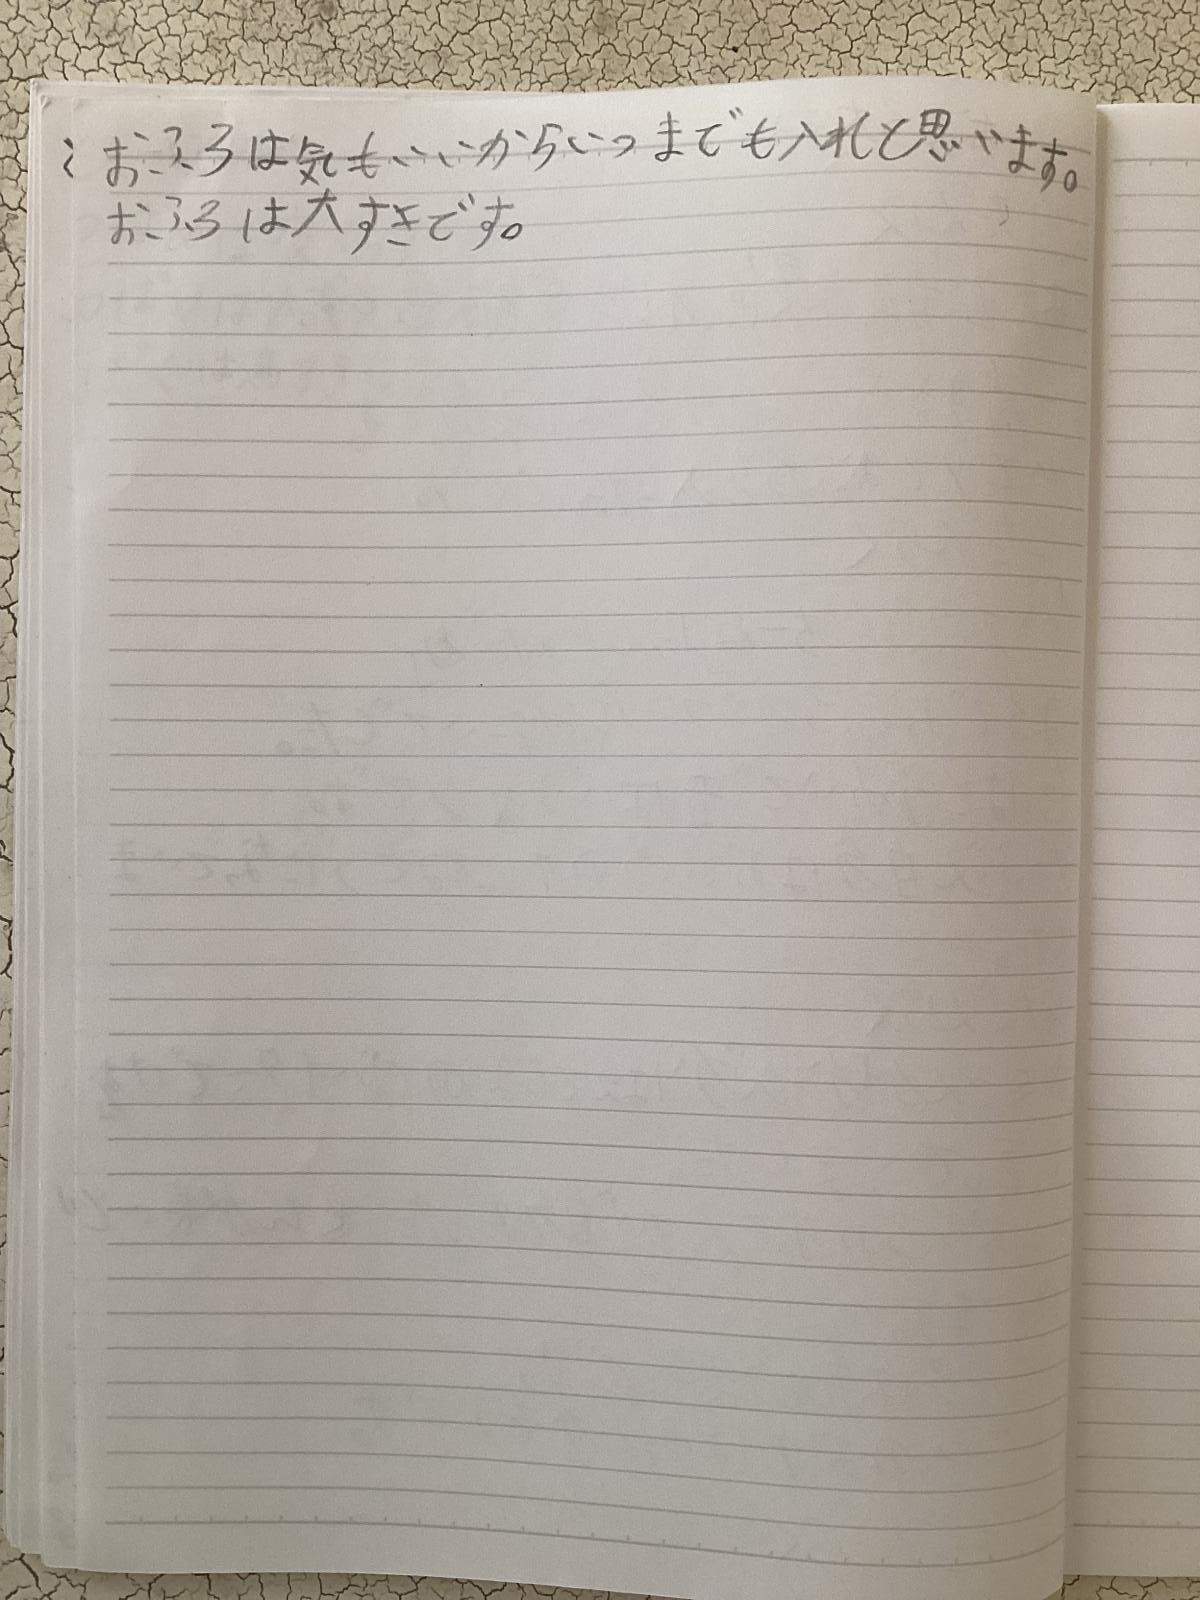 おふろは気もいいからいつまでも入れと思います。
おふろは大すきです。